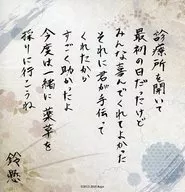 診療所を開いて
最初の日だったけど
みんな喜んでくれてよかった
それに君が手伝って
くれたから
すごく助かったよ
今度は一緒に薬草を
採りに行こうね
鈴懸